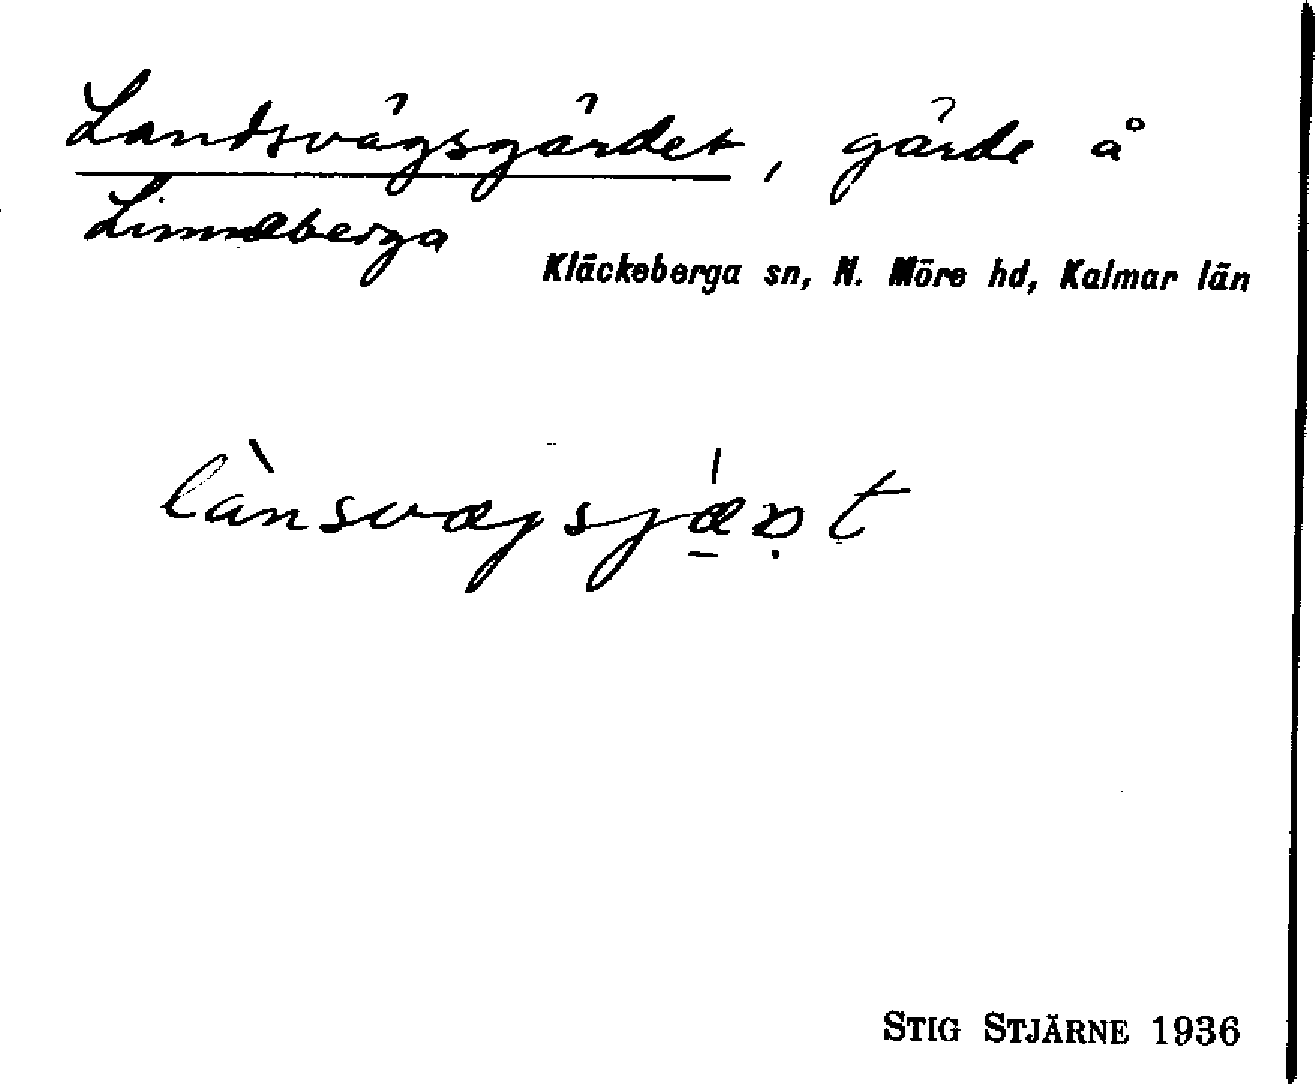 Landsvägsgärdet, gärde å
Linneberga
Kläckeberga sn, N. Möre hd, Kalmar län
lànsvægsjǽ̲ṇt
STIG STJÄRNE 1936